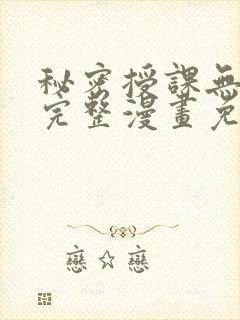 秘密授課無
完整漫畫免
戀☆戀